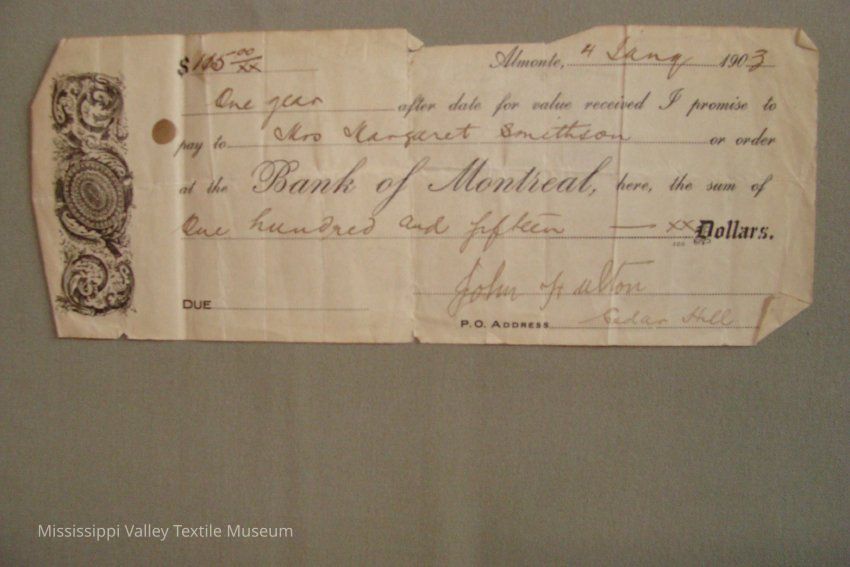 $ 115 00/xx
Almonte, 4 Jany 1903
One year after date for value received I promise to
pay to Mrs Margaret Smithson or order
at the Bank of Montreal, here, the sum of
One hundred and fifteen — xx/100 Dollars.
John
DUE
P.O. ADDRESS Cedar Hill
Mississippi Valley Textile Museum